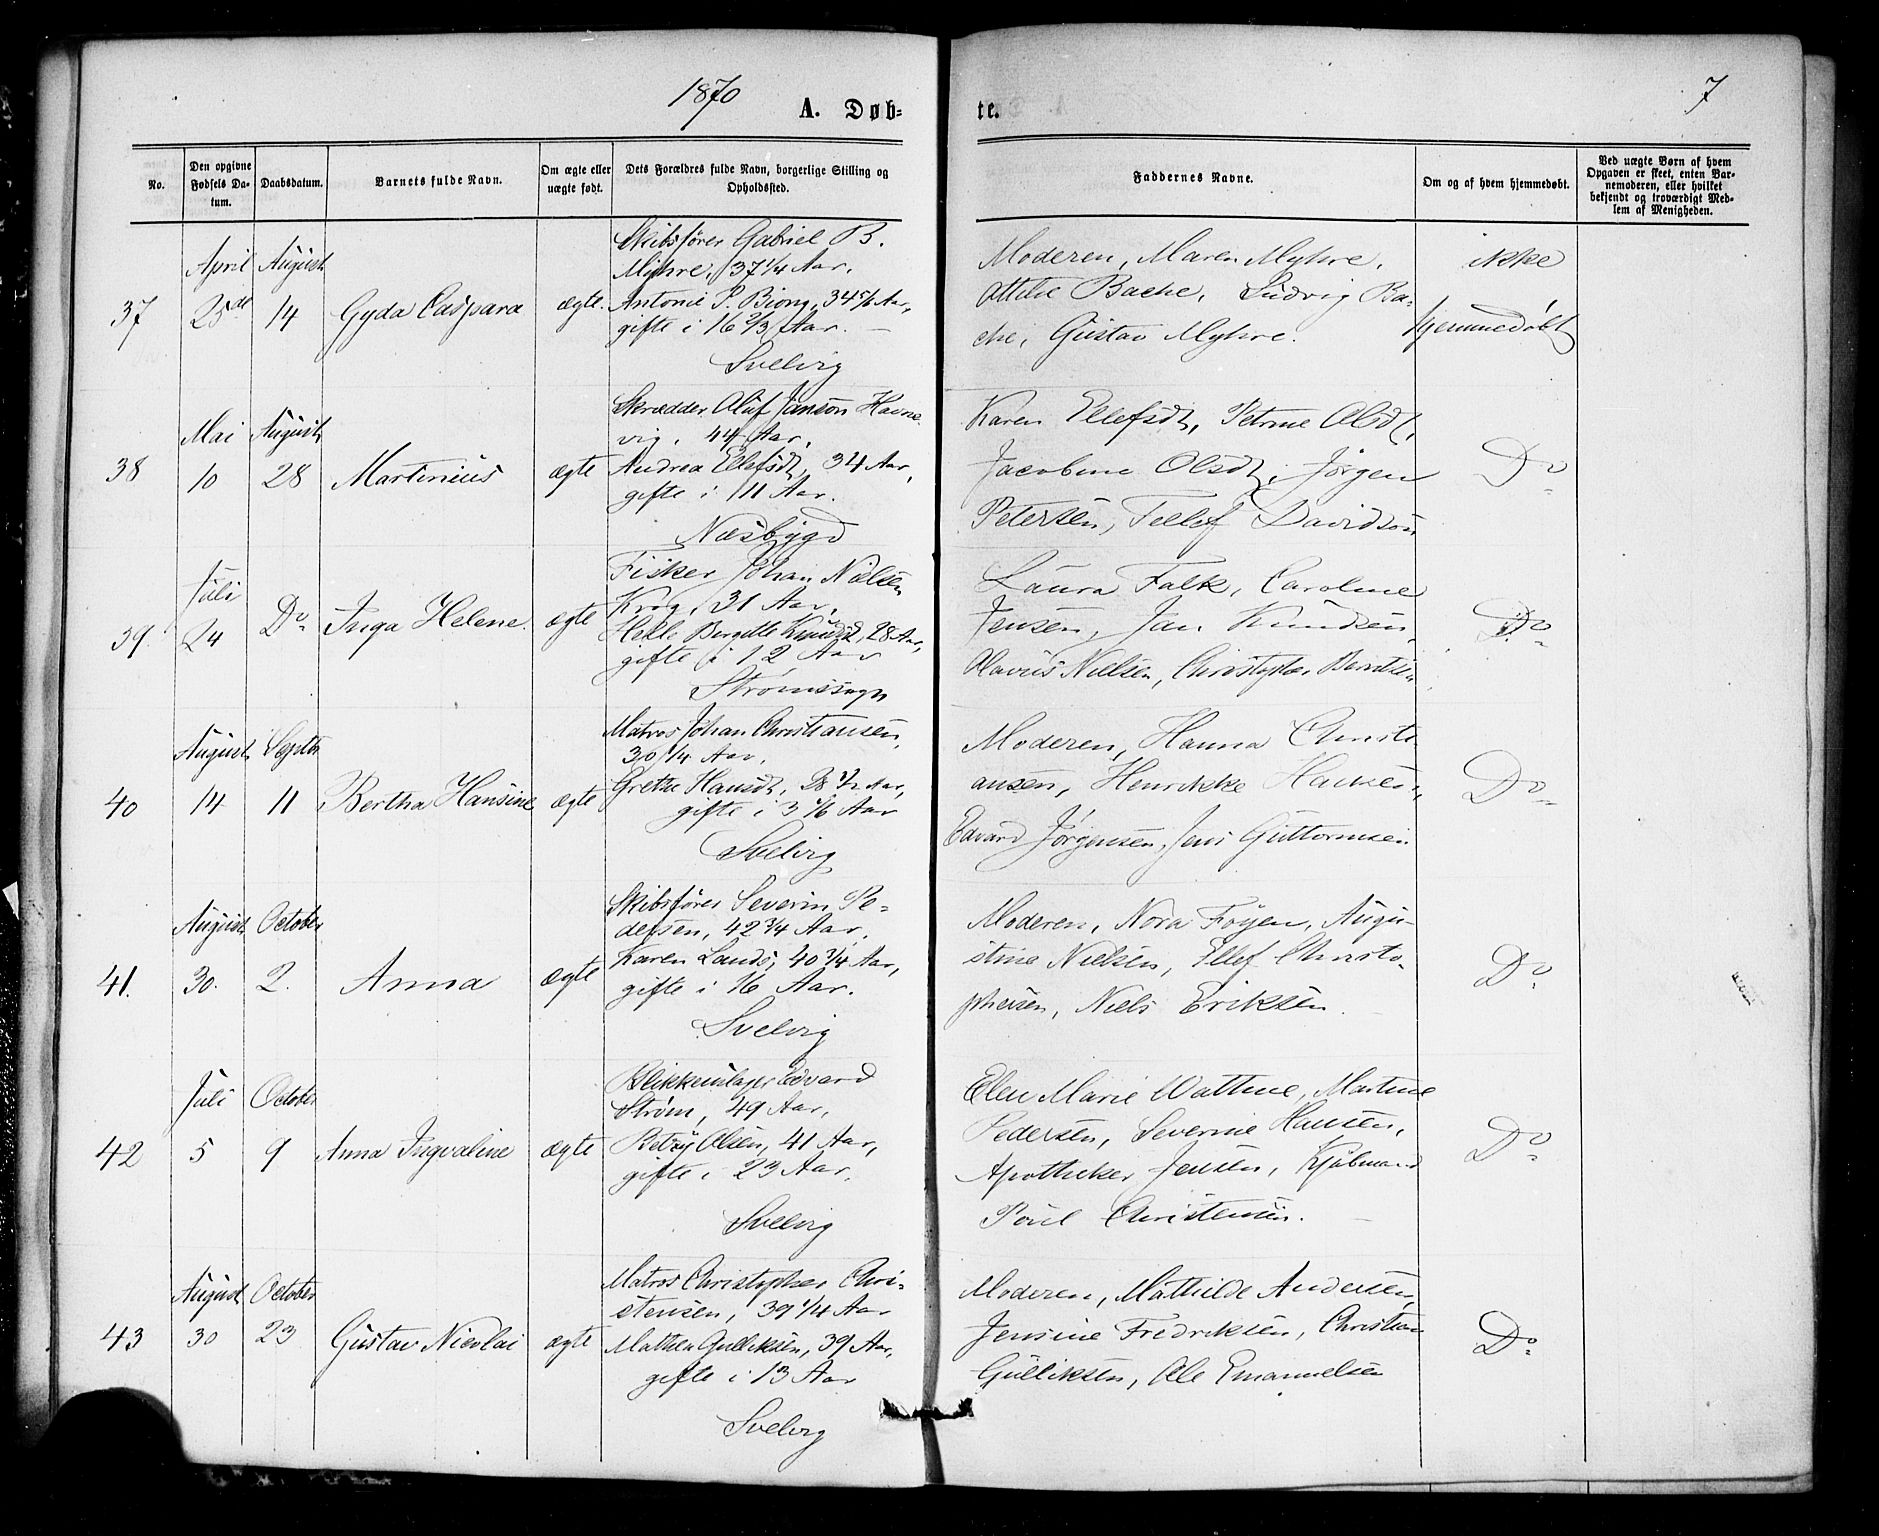 1870
A. Døb-
te.
7
No.
Den opgivne Fødsels Datum.
Daabsdatum.
Barnets fulde Navn.
Om ægte eller uægte født.
Dets Forældres fulde Navn, borgerlige Stilling og Opholdssted.
Faddernes Navne.
Om og af hvem hjemmedøbt.
Ved uægte Børn af hvem Opgaven er skeet, enten Barnemoderen, eller hvilket bekjendt og troværdigt Medlem af Menigheden.
37
April
25de
August
14
Gyda Caspara
ægte.
Skibsfører Gabriel B.
Myhre, 37 1/4 Aar.
Antonie P. Biong, 34 5/6 Aar,
gifte i 16 2/3 Aar. —
Svelvig
Moderen, Maren Myhre,
Ottilie Bache, Ludvig Ba-
che, Gustav Myhre.
ikke
hjemmedøbt
38
Mai
10
August
28
Martinius
ægte
Skrædder Oluf Janson Havne
vig, 44 Aar,
Andrea Ellefsdt, 34 Aar,
gifte i 11 Aar.
Næsbygd
Karen Ellefsdt, Petrine Olsdt,
Jacobine Olsdt, Jørgen
Petersen, Tellef Davidson
Do
39.
Juli
24
Do
Inga Helene.
ægte
Fisker Johan Nielsen
Krog, 31 Aar,
Helle Bergitte Knudsd, 28 Aar,
gifte i 12 Aar
Strømssogn
Laura Falk, Caroline
Jensen, Jan Knudsen,
Olavus Nielsen, Christopher Berntsen,
Do
40
August
14
Septbr
11
Bertha Hansine
ægte
Matros Johan Christiansen,
30 1/4 Aar,
Grethe Hansdt, 28 1/2 Aar,
gifte i 3 1/6 Aar
Svelvig
Moderen, Hanna Christi-
ansen, Henrikke Hansen,
Edvard Jørgensen, Jens Guttormsen
Do
41.
August
30.
October
2.
Anna
ægte
Skibsfører Severin Pe-
dersen, 42 3/4 Aar,
Karen Lands, 40 3/4 Aar,
gifte i 16 Aar.
Svelvig
Moderen, Nora Føyen, Augu-
stine Nielsen, Ellef Christo-
phersen, Niels Eriksen.
Do
42
Juli
5
October
9
Anna Ingvaline
ægte
Blikkenslager Edvard
Strøm, 49 Aar,
Betzy Olsen, 41 Aar,
gifte i 23 Aar.
Svelvig
Elen Marie Wattne, Martine
Pedersen, Severine Hansen,
Apotheker Jensen, Kjøbmand
Poul Christensen.
Do
43
August
30
October
23
Gustav Nicolai
ægte
Matros Christopher Chri-
stensen, 39 1/4 Aar
Mathea Gulliksen, 39 Aar,
gifte i 13 Aar
Svelvig
Moderen, Mathilde Andersen,
Jensine Fredriksen, Christian
Gulliksen, Ole Emanuelsen
Do